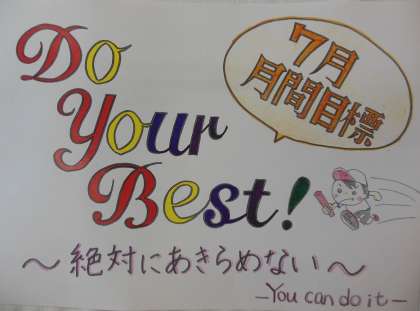 Do
Your
Best!
7月
月間目標
～絶対にあきらめない～
—You can do it—